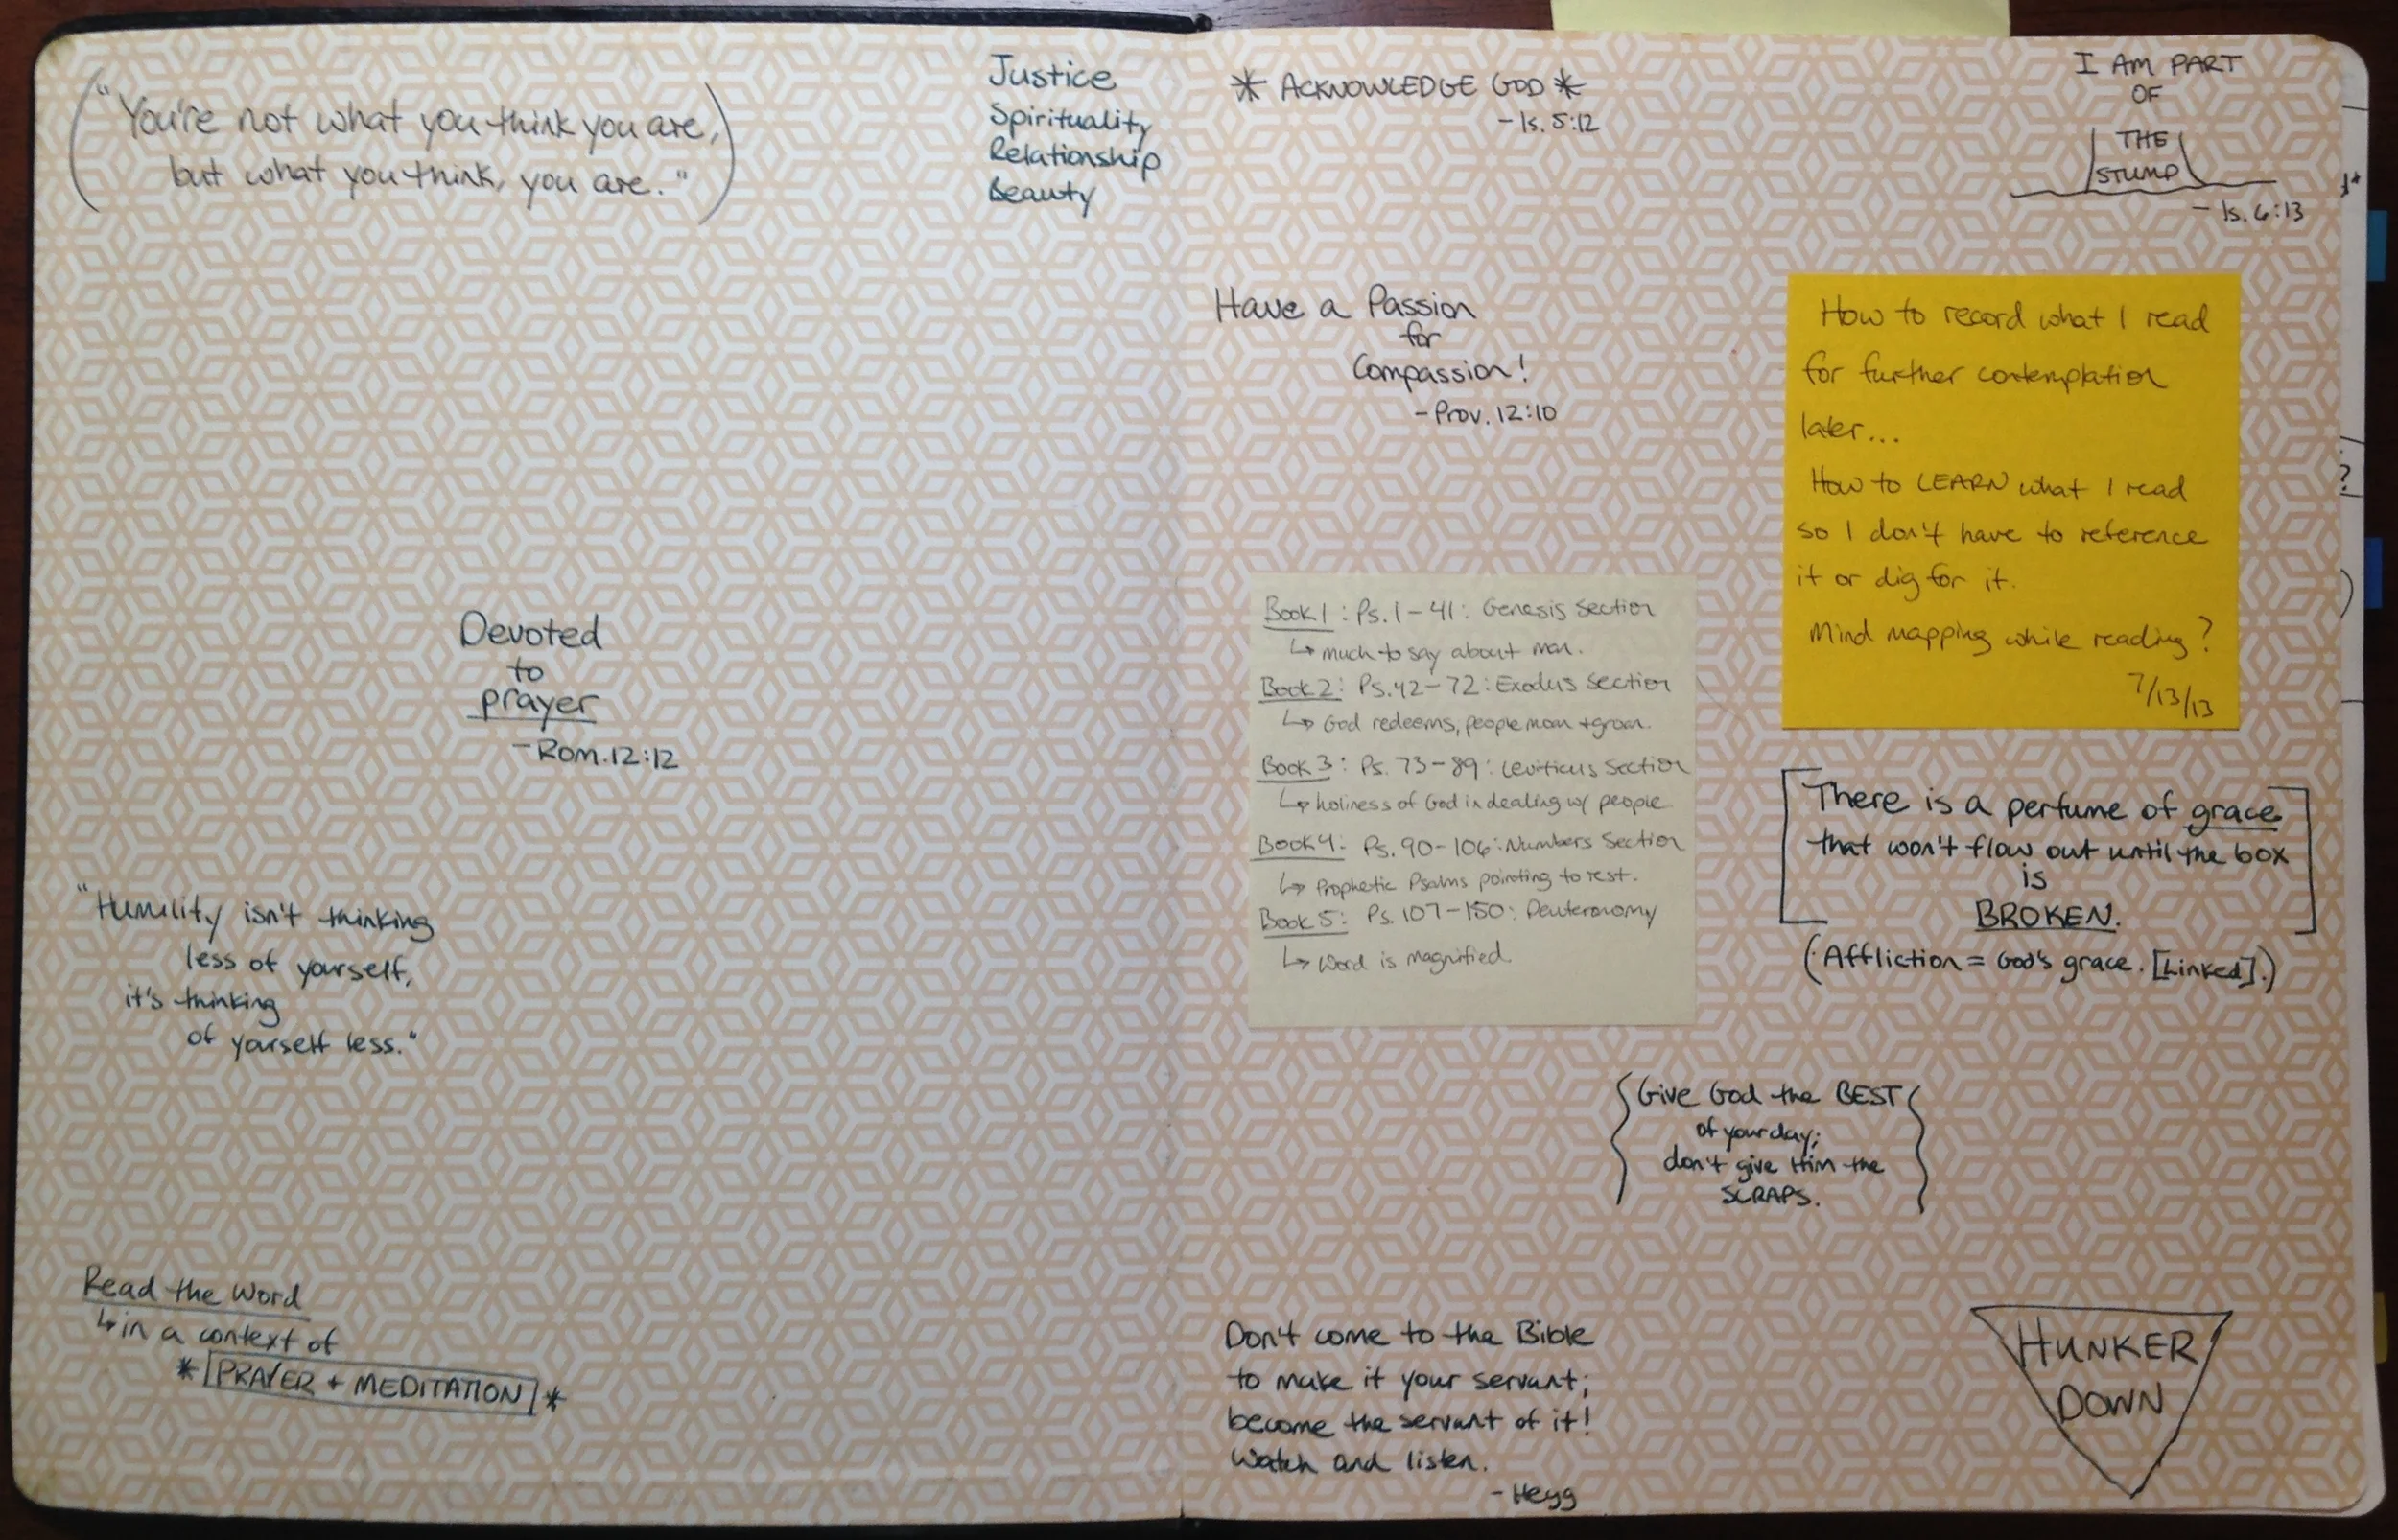 "You're not what you think you are,
but what you think, you are."
Justice
Spirituality
Relationship
Beauty
Devoted
to
prayer
-Rom. 12:12
"Humility isn't thinking
less of yourself,
it's thinking
of yourself less."
Read the Word
↳ in a context of
* PRAYER + MEDITATION *
* ACKNOWLEDGE GOD *
- Is. 5:12
I AM PART
OF
THE
STUMP
- Is. 6:13
Have a Passion
for
Compassion!
- Prov. 12:10
How to record what I read
for further contemplation
later...
How to LEARN what I read
so I don't have to reference
it or dig for it.
Mind mapping while reading?
7/13/13
Book 1: Ps. 1-41: Genesis Section
↳ much to say about man.
Book 2: Ps. 42-72: Exodus Section
↳ God redeems, people moan + groan.
Book 3: Ps. 73-89: Leviticus Section
↳ holiness of God in dealing w/ people
Book 4: Ps. 90-106: Numbers Section
↳ Prophetic Psalms pointing to rest.
Book 5: Ps. 107-150: Deuteronomy
↳ Word is magnified.
[There is a perfume of grace
that won't flow out until the box
is
BROKEN.]
(Affliction = God's grace. [Linked].)
{Give God the BEST
of your day;
don't give Him the
SCRAPS.}
Don't come to the Bible
to make it your servant;
become the servant of it!
Watch and listen.
- Hegg
HUNKER
DOWN